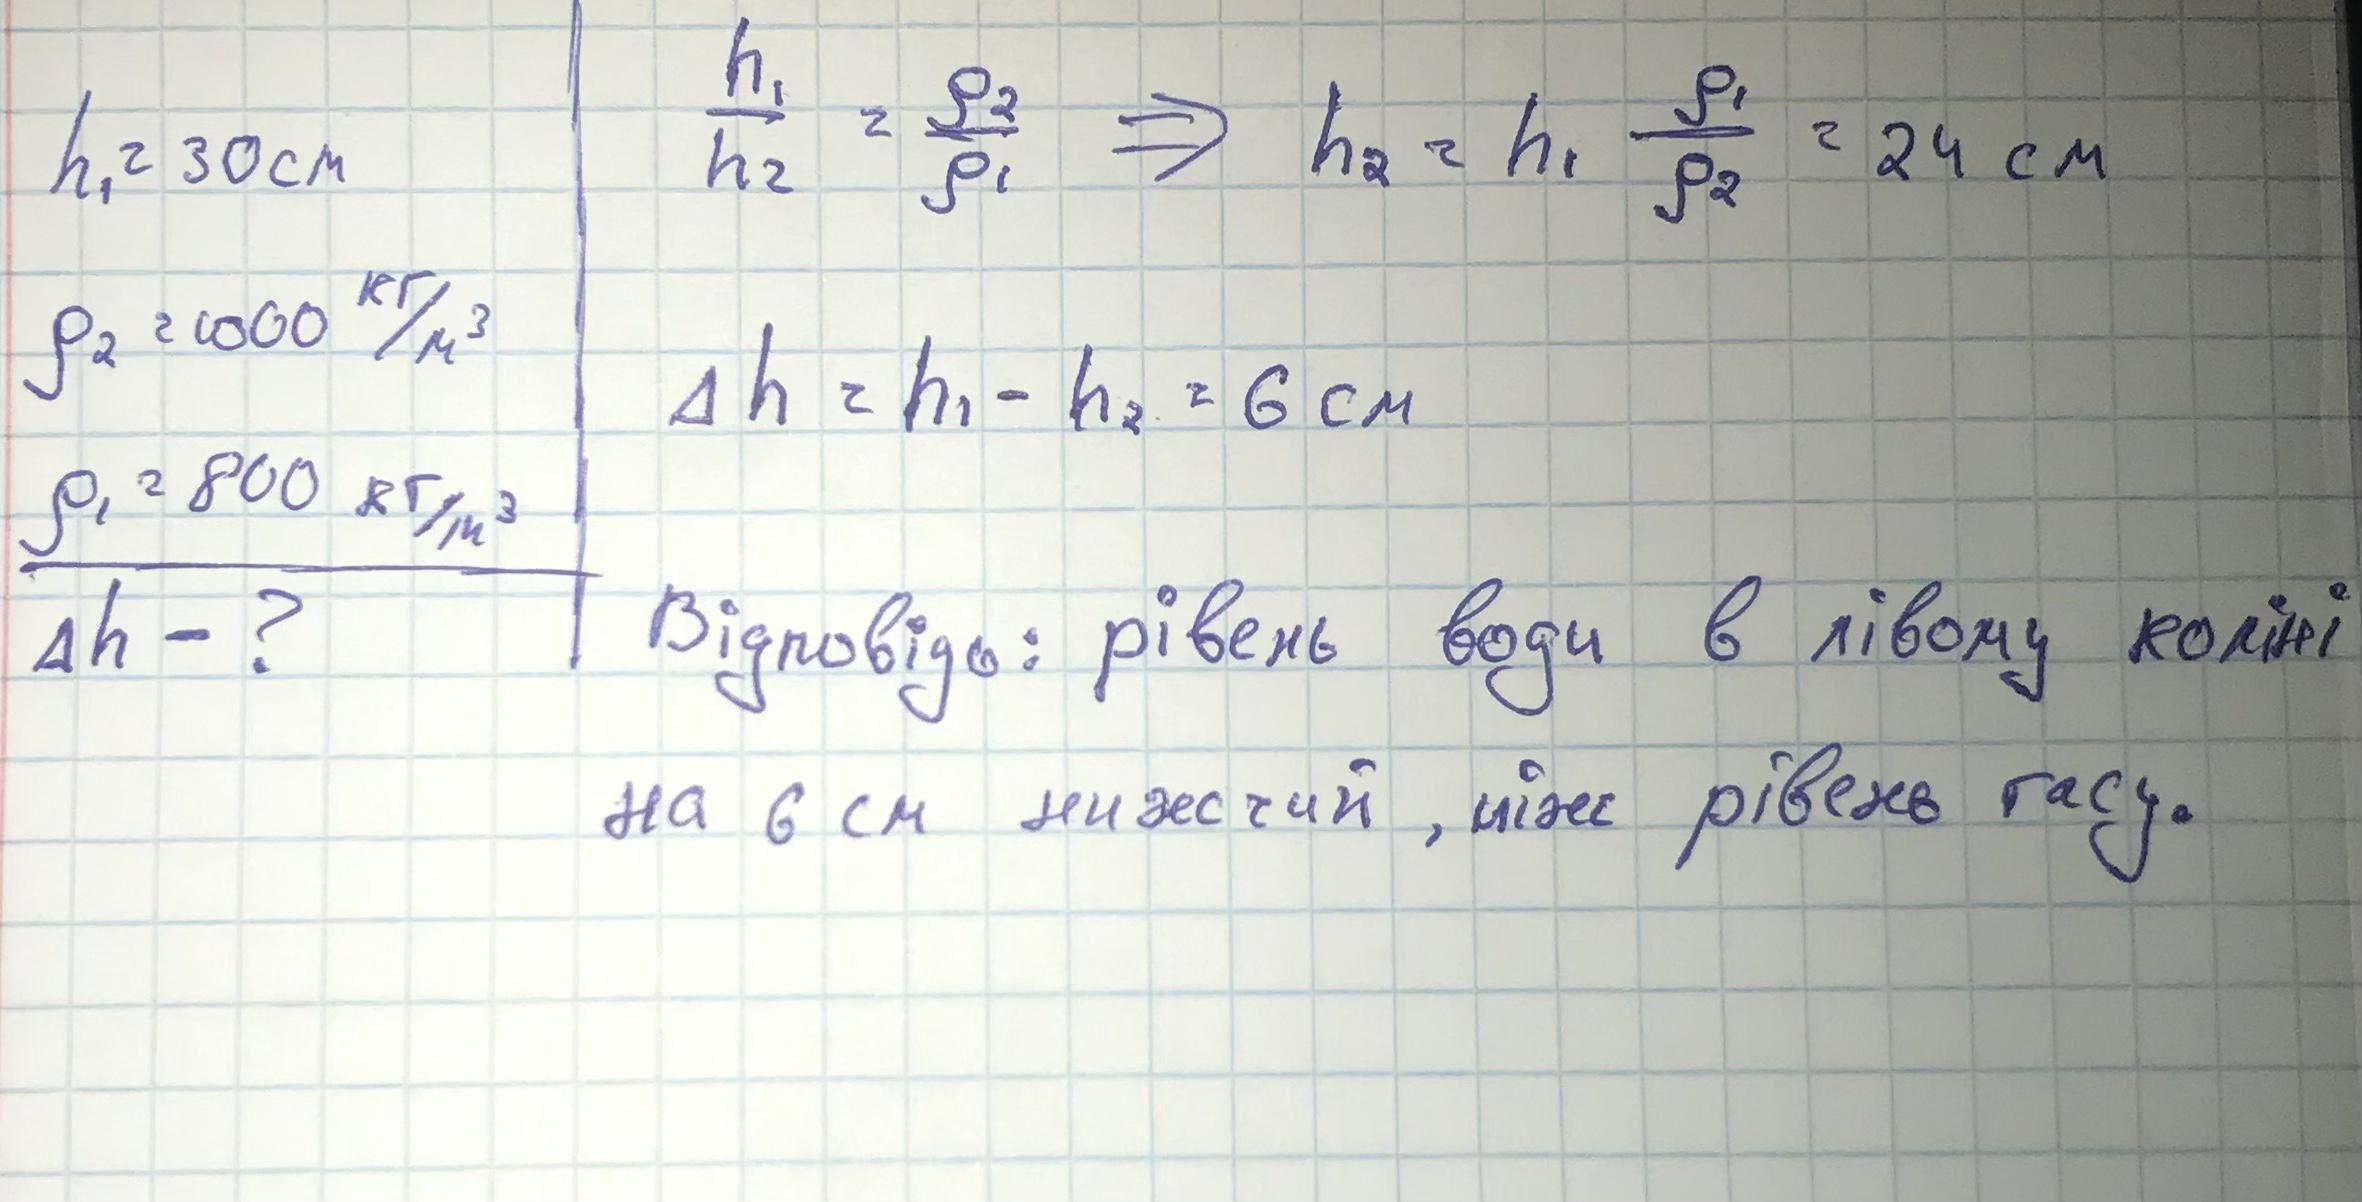 h₁ = 30 см
ρ₂ = 1000 кг/м³
ρ₁ = 800 кг/м³
Δh - ?
h₁/h₂ = ρ₂/ρ₁ ⇒ h₂ = h₁ ρ₁/ρ₂ = 24 см
Δh = h₁ - h₂ = 6 см
Відповідь: рівень води в лівому коліні
на 6 см нижчий, ніж рівень гасу.